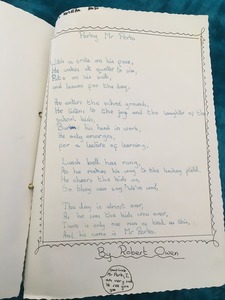 Porko, Mr Porko
With a smile on his face,
He wakes at quarter to six,
Puts on his suit,
and leaves for the day.
As enters the school grounds,
He listens to the joy and the laughter of the
school kids,
his head in work,
He only emerges,
for a lecture of learning.
Lunch bell has rung,
As he makes his way to the footy field.
He cheers the kids on,
So they may
The day is almost over,
As he says the kids
There is only one man as kind as him,
And his name is Mr Porko.
By Robert Owen
Good luck
Mr Porko I
am very sad
to see you
go